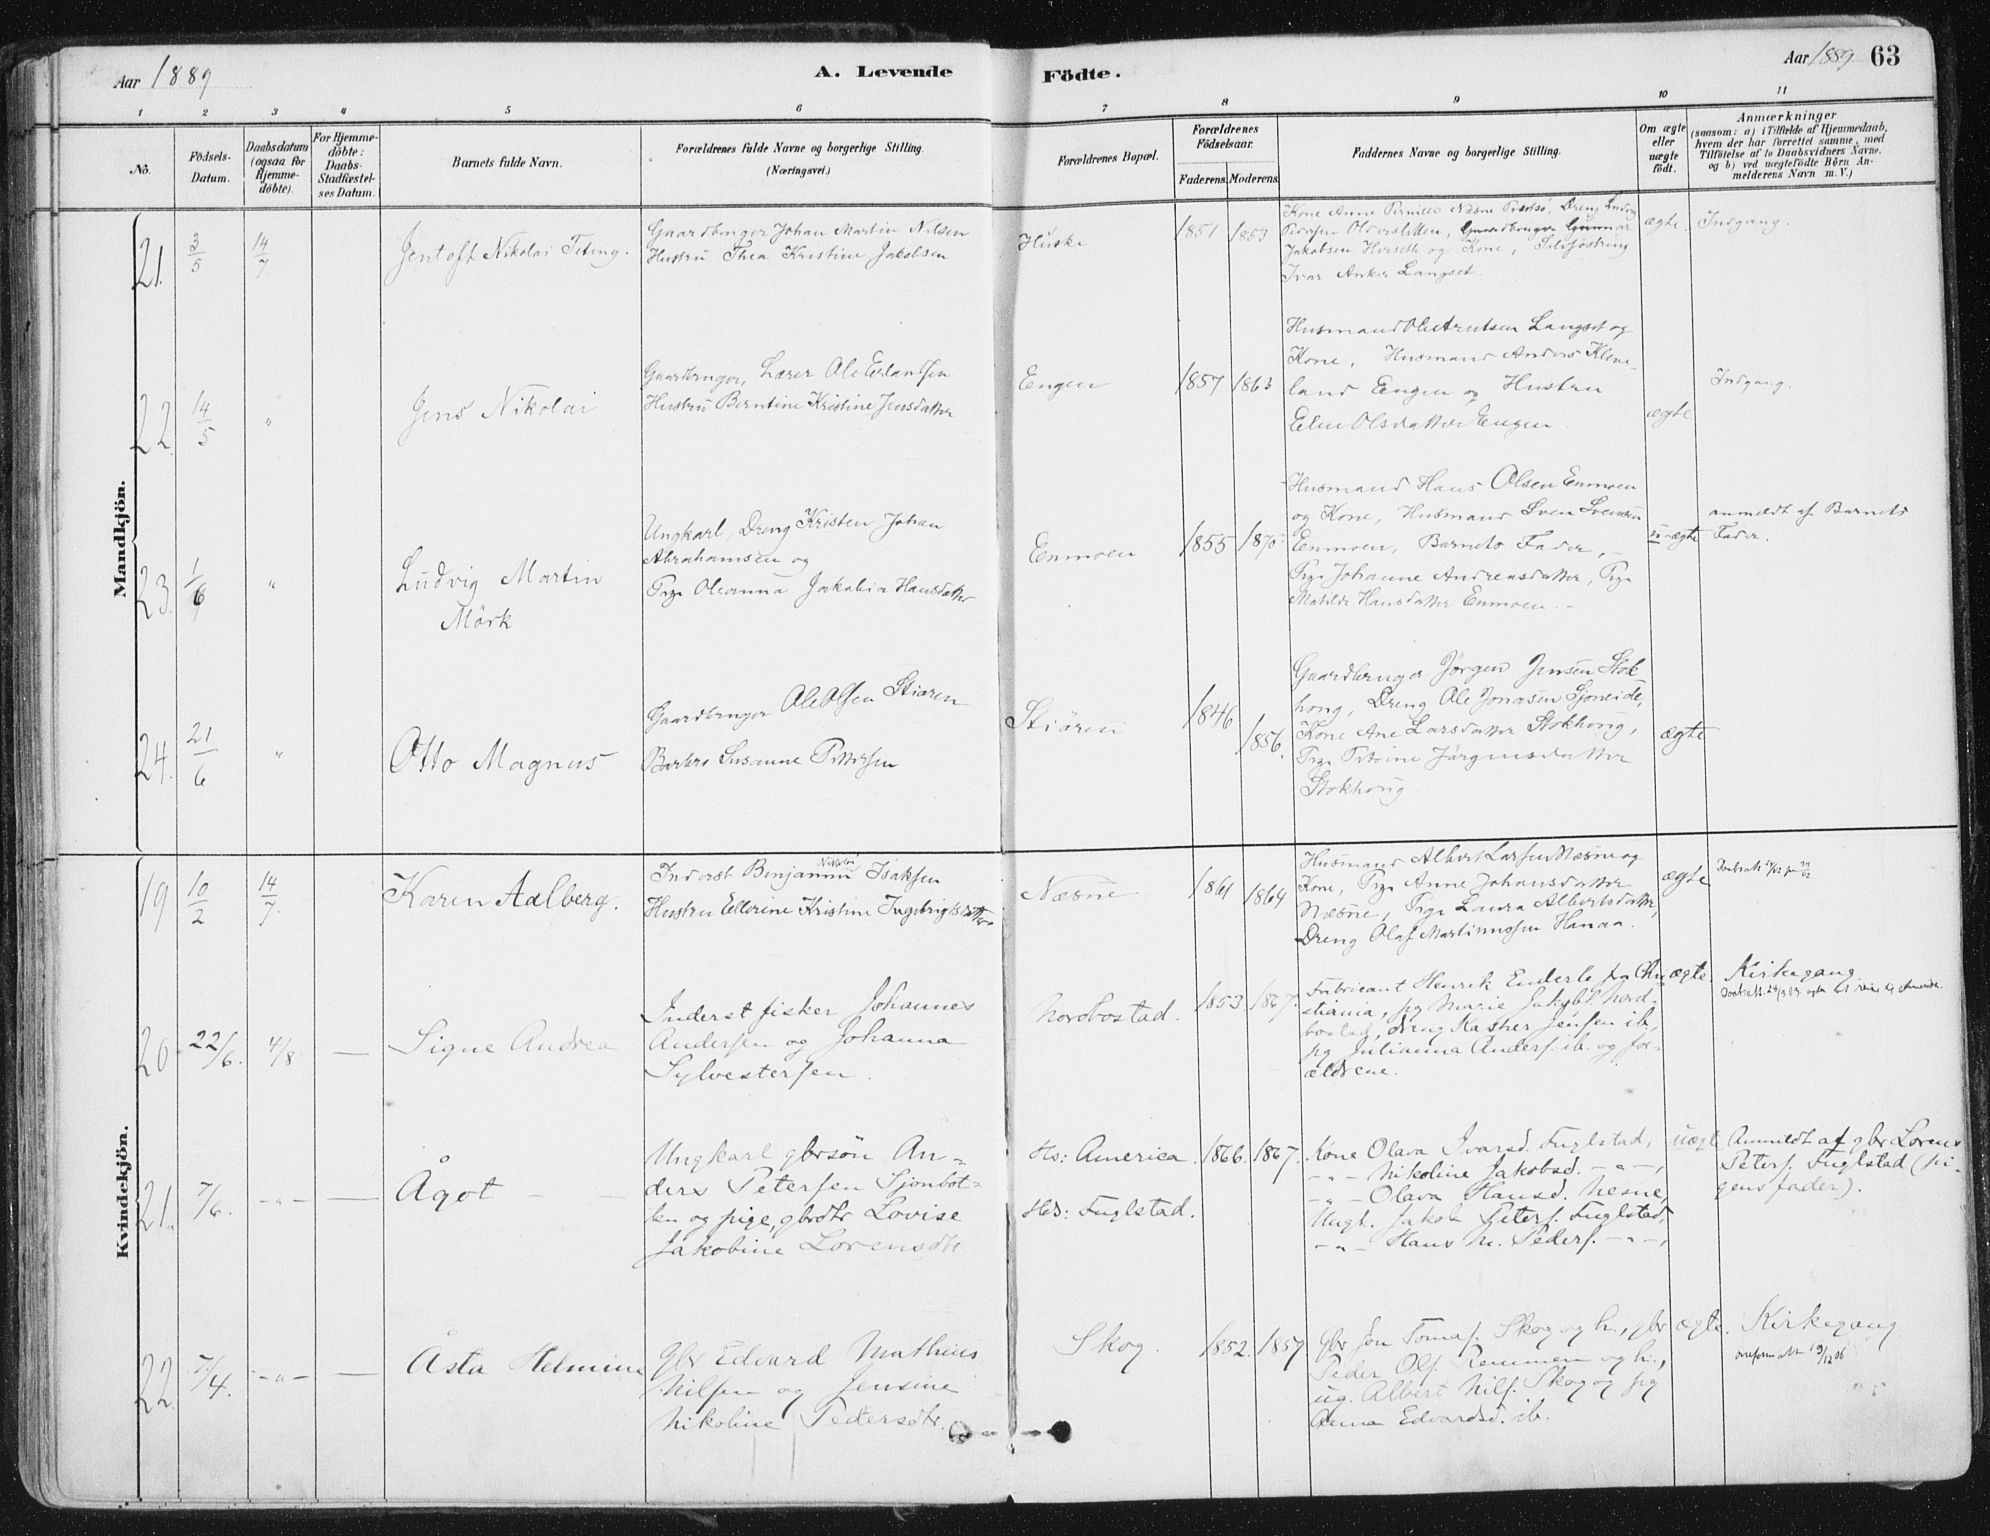 Aar 1889
A. Levende
Födte.
Aar 1889 63
1 2 3 4 5 6 7 8 9 10 11
No.
Födsels-
Datum.
Daabsdatum
(ogsaa for
Hjemme-
döbte).
For Hjemme-
döbte:
Daabs-
Stadfæstel-
ses Datum.
Barnets fulde Navn.
Forældrenes fulde Navne og borgerlige Stilling.
(Næringsvei.)
Forældrenes Bopæl.
Forældrenes
Födselsaar.
Faderens. Moderens.
Faddernes Navne og borgerlige Stilling.
Om ægte
eller
uægte
födt.
Anmærkninger
(saasom: a) i Tilfælde af Hjemmedaab,
hvem der har forrettet samme, med
Tilföielse af to Daabsvidners Navne.
og b) ved uægtefödte Børn An-
melderens Navn m. V.)
Mandkjön.
21. 3/5 14/7
Jentoft Nikolai Teting.
Gaardbruger Johan Martin Nilsen
Hustru Thea Kristine Jakobsen
Huske
1851 1853
Kone Anne Pernille Næsne Dreng Ludvig
Pedersen Gaardbruger Gunnar
Jakobsen Herseth og Kone,
Ivar Anker Langset.
ægte.
Indgang.
22 14/5 "
Jens Nikolai
Gaardbruger, Lærer Ole Erlandsen
Hustru Berntine Kristine Jensdatter
Engen
1857 1863
Husmand Ole Arntsen Langset og
Kone, Husmand Anders Kleve-
land Engen og Hustru
Elen Olsdatter Engen
ægte
Indgang.
23. 1/6 "
Ludvig Martin
Mörk
Ungkarl, Dreng Kristen Johan
Abrahamsen og
Pige Oleanna Jakobia Hansdatter
Enmoen
1855 1870
Husmand Hans Olsen Enmoen
og Kone, Husmand Sven Svensen
Enmoen, Barnets Fader, -
Pige Johanne Andreasdatter, Pige
Matilde Hansdatter Enmoen. -
u-ægte
anmeldt af Barnets
Fader.
24. 21/6 "
Otto Magnus
Gaardbruger Ole Olsen Stiøren
Barbro Susanne Pettersen
Stiøren
1846
1856.
Gaardbruger Jørgen Jensen Stok
hong, Dreng Ole Jonasen Sjoneide,
Kone Ane Larsdatter Stokhong,
Pige Jørgensdatter
Stokhong
ægte
Kvindekjön.
19 10/2 14/7
Karen Aalberg.
Nikolai
Inderst Benjamin Isaksen
Hustru Ellerine Kristine Ingebrigtsdatter
Næsne
1861 1864
Husmand Albert Larsen Næsne og
Kone, Pige Anne Johansdatter
Næsne, Pige Laura Albertsdatter,
Dreng Olaf Martinussen Hanaa.
ægte
20 22/6. 4/8 —
Signe Andrea
Inderst fisker Johannes
Andersen og Johanna
Sylvestersen.
Nordbostad.
1853. 1867.
Fabricant Henrik Enderle fra Chri-
stiania, pg Marie Jakobs. Nord-
bostad, dreng Kasper Jensen ib.,
pg Julianna Anders. ib. og for-
ældrene.
ægte.
Kirkegang
21. 7/6. -"- —
Ågot
Ungkarl gbrsøn An-
ders Petersen Sjonbot-
ten og pige, gbrdtr Lovise
Jakobine Lorensdtr
Hs: America.
Hds: Fuglstad.
1866. 1867.
Kone Olava Ivarsd. Fuglstad,
-"- Nikoline Jakobsd. -"-,
-"- Olava Hansd. Nesne,
Ungk. Jakob Peters. Fuglstad,
-"- Hans N. Peders. -"-,
uægt.
Anmeldt af gbr Lorens
Peters. Fuglstad (pi-
gens fader).
22. 7/4. -"- —
Åsta Helmine
Gbr Edvard Mathius
Nilsen og Jensine
Nikoline Pedersdtr.
Skog.
1852. 1859
Gbr Jon Tomas. Skog og h., gbr
Peder Ols. Remmen og h.,
ug. Albert Nils. Skog og pg
Anna Edvardsd. ib.
ægte.
Kirkegang
19/12 06